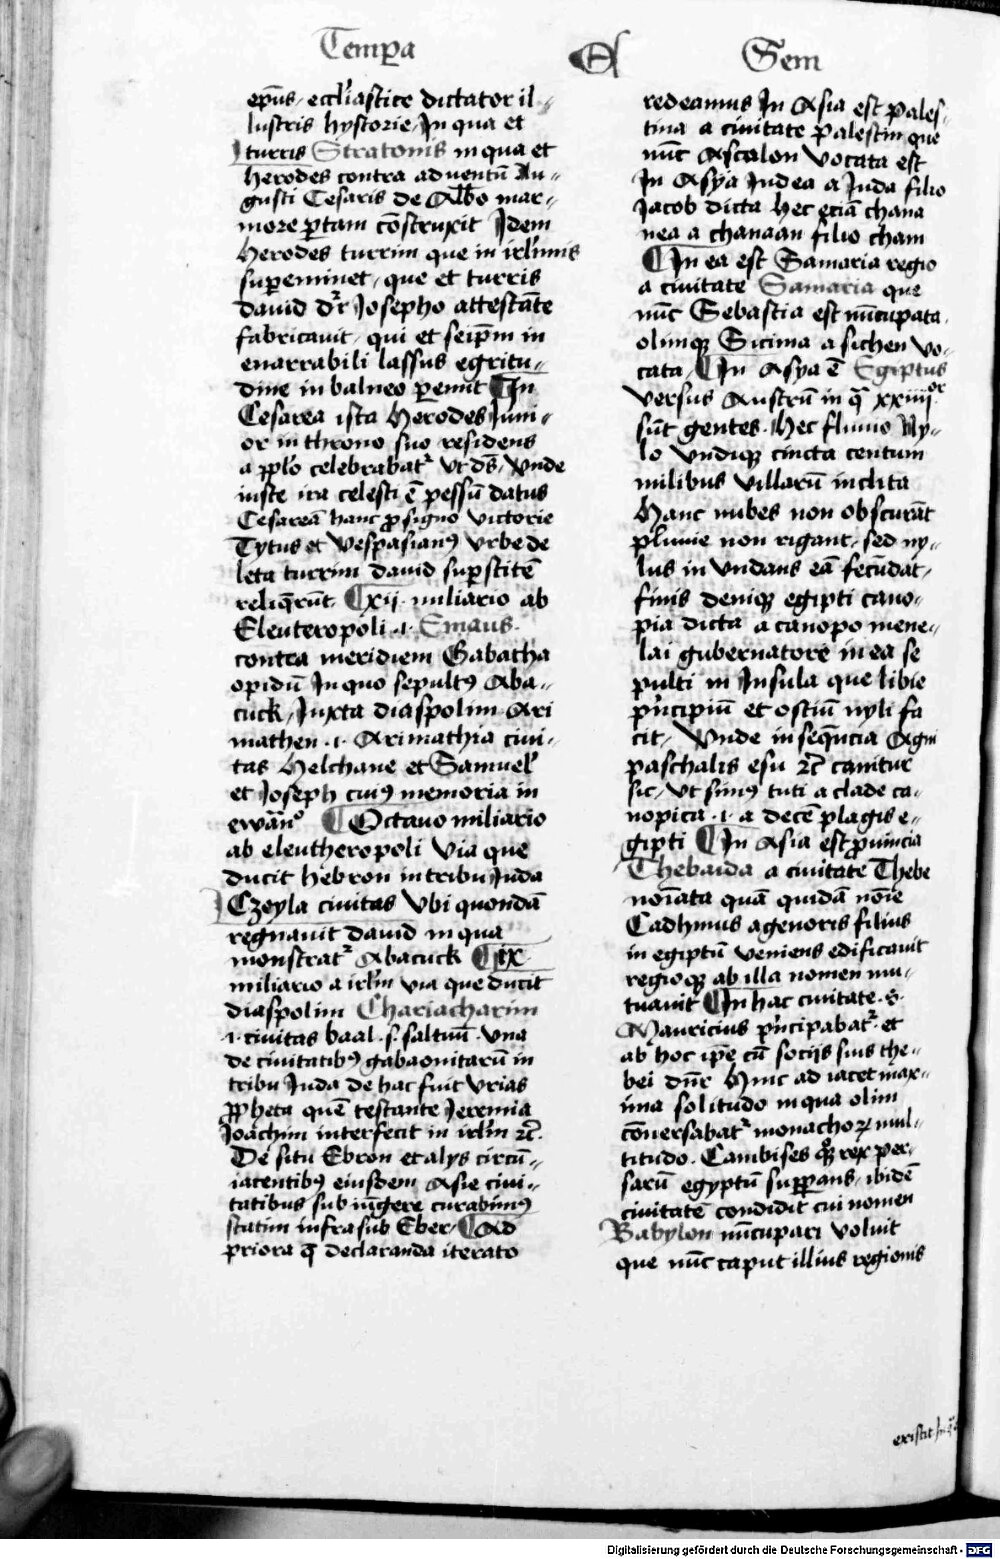 Temp̄a
Sem
ep̄us, eccl̓iastice dictator il-
lustris hystorie, In qua et
turris Stratonis in qua et
herodes contra aduentū Au-
gusti Cesaris de Albo mar-
more ꝑtam cōstruxit Idem
Herodes turrim que in irl̓imis
suꝑeminet, que et turris
dauid dr̄ Josepho attestāte
fabricauit, qui et seip̄m in
enarrabili lassus egritu-
dine in balneo ꝑemit In
Cesarea ista Herodes Juni-
or in throno suo residens
a pp̄lo celebrabat᷑ vt ds̄, vnde
iuste ira celesti ē pessū datus
Cesareā hanc ꝓ signo victorie
Tytus et vespasianꝰ vrbe de
leta turrim dauid suꝑstitē
reliq̄rūt, xij miliario ab
Eleuteropoli .i. Emaus.
contra meridiem Gabatha
opidū In quo sepultꝰ Aba-
cuck, Juxta diaspolim Ari
mathen .i. Arimathia ciui-
tas Helchane et Samuel̓
et Joseph cuiꝰ memoria in
ewāno Octauo miliario
ab eleutheropoli via que
ducit hebron in tribu Juda
Czeyla ciuitas vbi quondā
regnauit dauid in qua
monstrat᷑ Abacuck ix
miliario a irl̓m via que ducit
diaspolim Chariacharim
.i. ciuitas baal .s. saltuū vna
de ciuitatibꝰ gabaonitarū in
tribu Juda de hac fuit vrias
ꝓpheta quē testante Jeremia
Joachim interfecit in irl̓m ⁊c̄.
De situ Ebron et alijs circū-
iacentibꝰ eiusdem Asie ciui-
tatibus sub iūgere curabimꝰ
statim infra sub Eber, Ad
priora q̄ declaranda iterato
redeamus In Asia est Pales-
tina a ciuitate Palestin que
nūc Ascalon vocata est
In Asya Judea a Juda filio
Jacob dicta Hec eciā chana
nea a chanaan filio cham
In ea est Samaria regio
a ciuitate Samaria que
nūc Sebastia est nūcupata
olimqꝫ Sicima a sichen vo-
cata, In Asya ē Egiptus
versus Austrū in q̄ xxiiijor
sūt gentes. Hec fluuio Ny-
lo vndiqꝫ cincta centum
milibus villarū inclita
Hanc nubes non obscurāt
pluuie non rigant, sed ny-
lus in vndans eā fecūdat,
finis deniqꝫ egipti cano-
pia dicta a canopo mene-
lai gubernatore in ea se
pulti in Insula que libie
pͥncipiū et ostiū nyli fa
cit, vnde in seq̄ncia Agni
paschalis esu ⁊c̄ canitur
sic, vt simꝰ tuti a clade ca-
nopica .i. a decē plagis e-
gipti In Asia est ꝓuincia
Thebaida a ciuitate Thebe
noīata quā quidā noīe
Cadhmus agenoris filius
in egiptū veniens edificauit
regioqꝫ ab illa nomen mu-
tuauit In hac ciuitate .s.
Mauricius pͥncipabat᷑ et
ab hoc ip̄e cū socijs suis the-
bei dn̄r Huic ad iacet max-
ima solitudo in qua olim
cōuersabat᷑ monachoꝝ mul-
titudo. Cambises qͦꝫ rex per-
sarū egyptū suꝑans, ibidē
ciuitatē condidit cui nomen
Babylon nūcupari voluit
que nūc caput illius regionis
existit
Digitalisierung gefördert durch die Deutsche Forschungsgemeinschaft - DFG